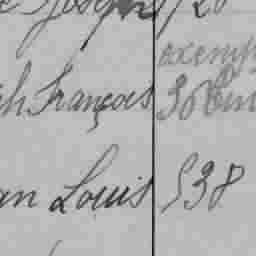 Joseph 720
exemp
ph François 30 Em
an Louis 538